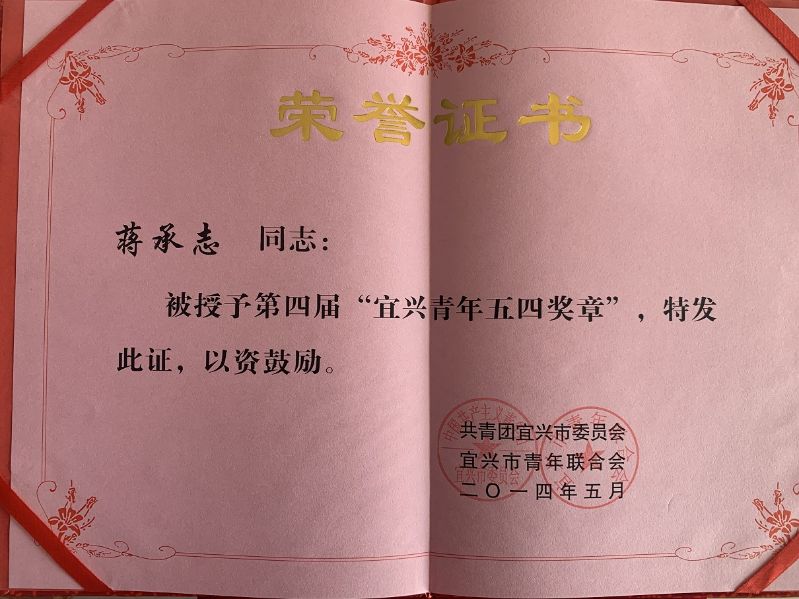 荣誉证书
蒋承志 同志：
被授予第四届“宜兴青年五四奖章”，特发
此证，以资鼓励。
共青团宜兴市委员会
宜兴市青年联合会
二〇一四年五月